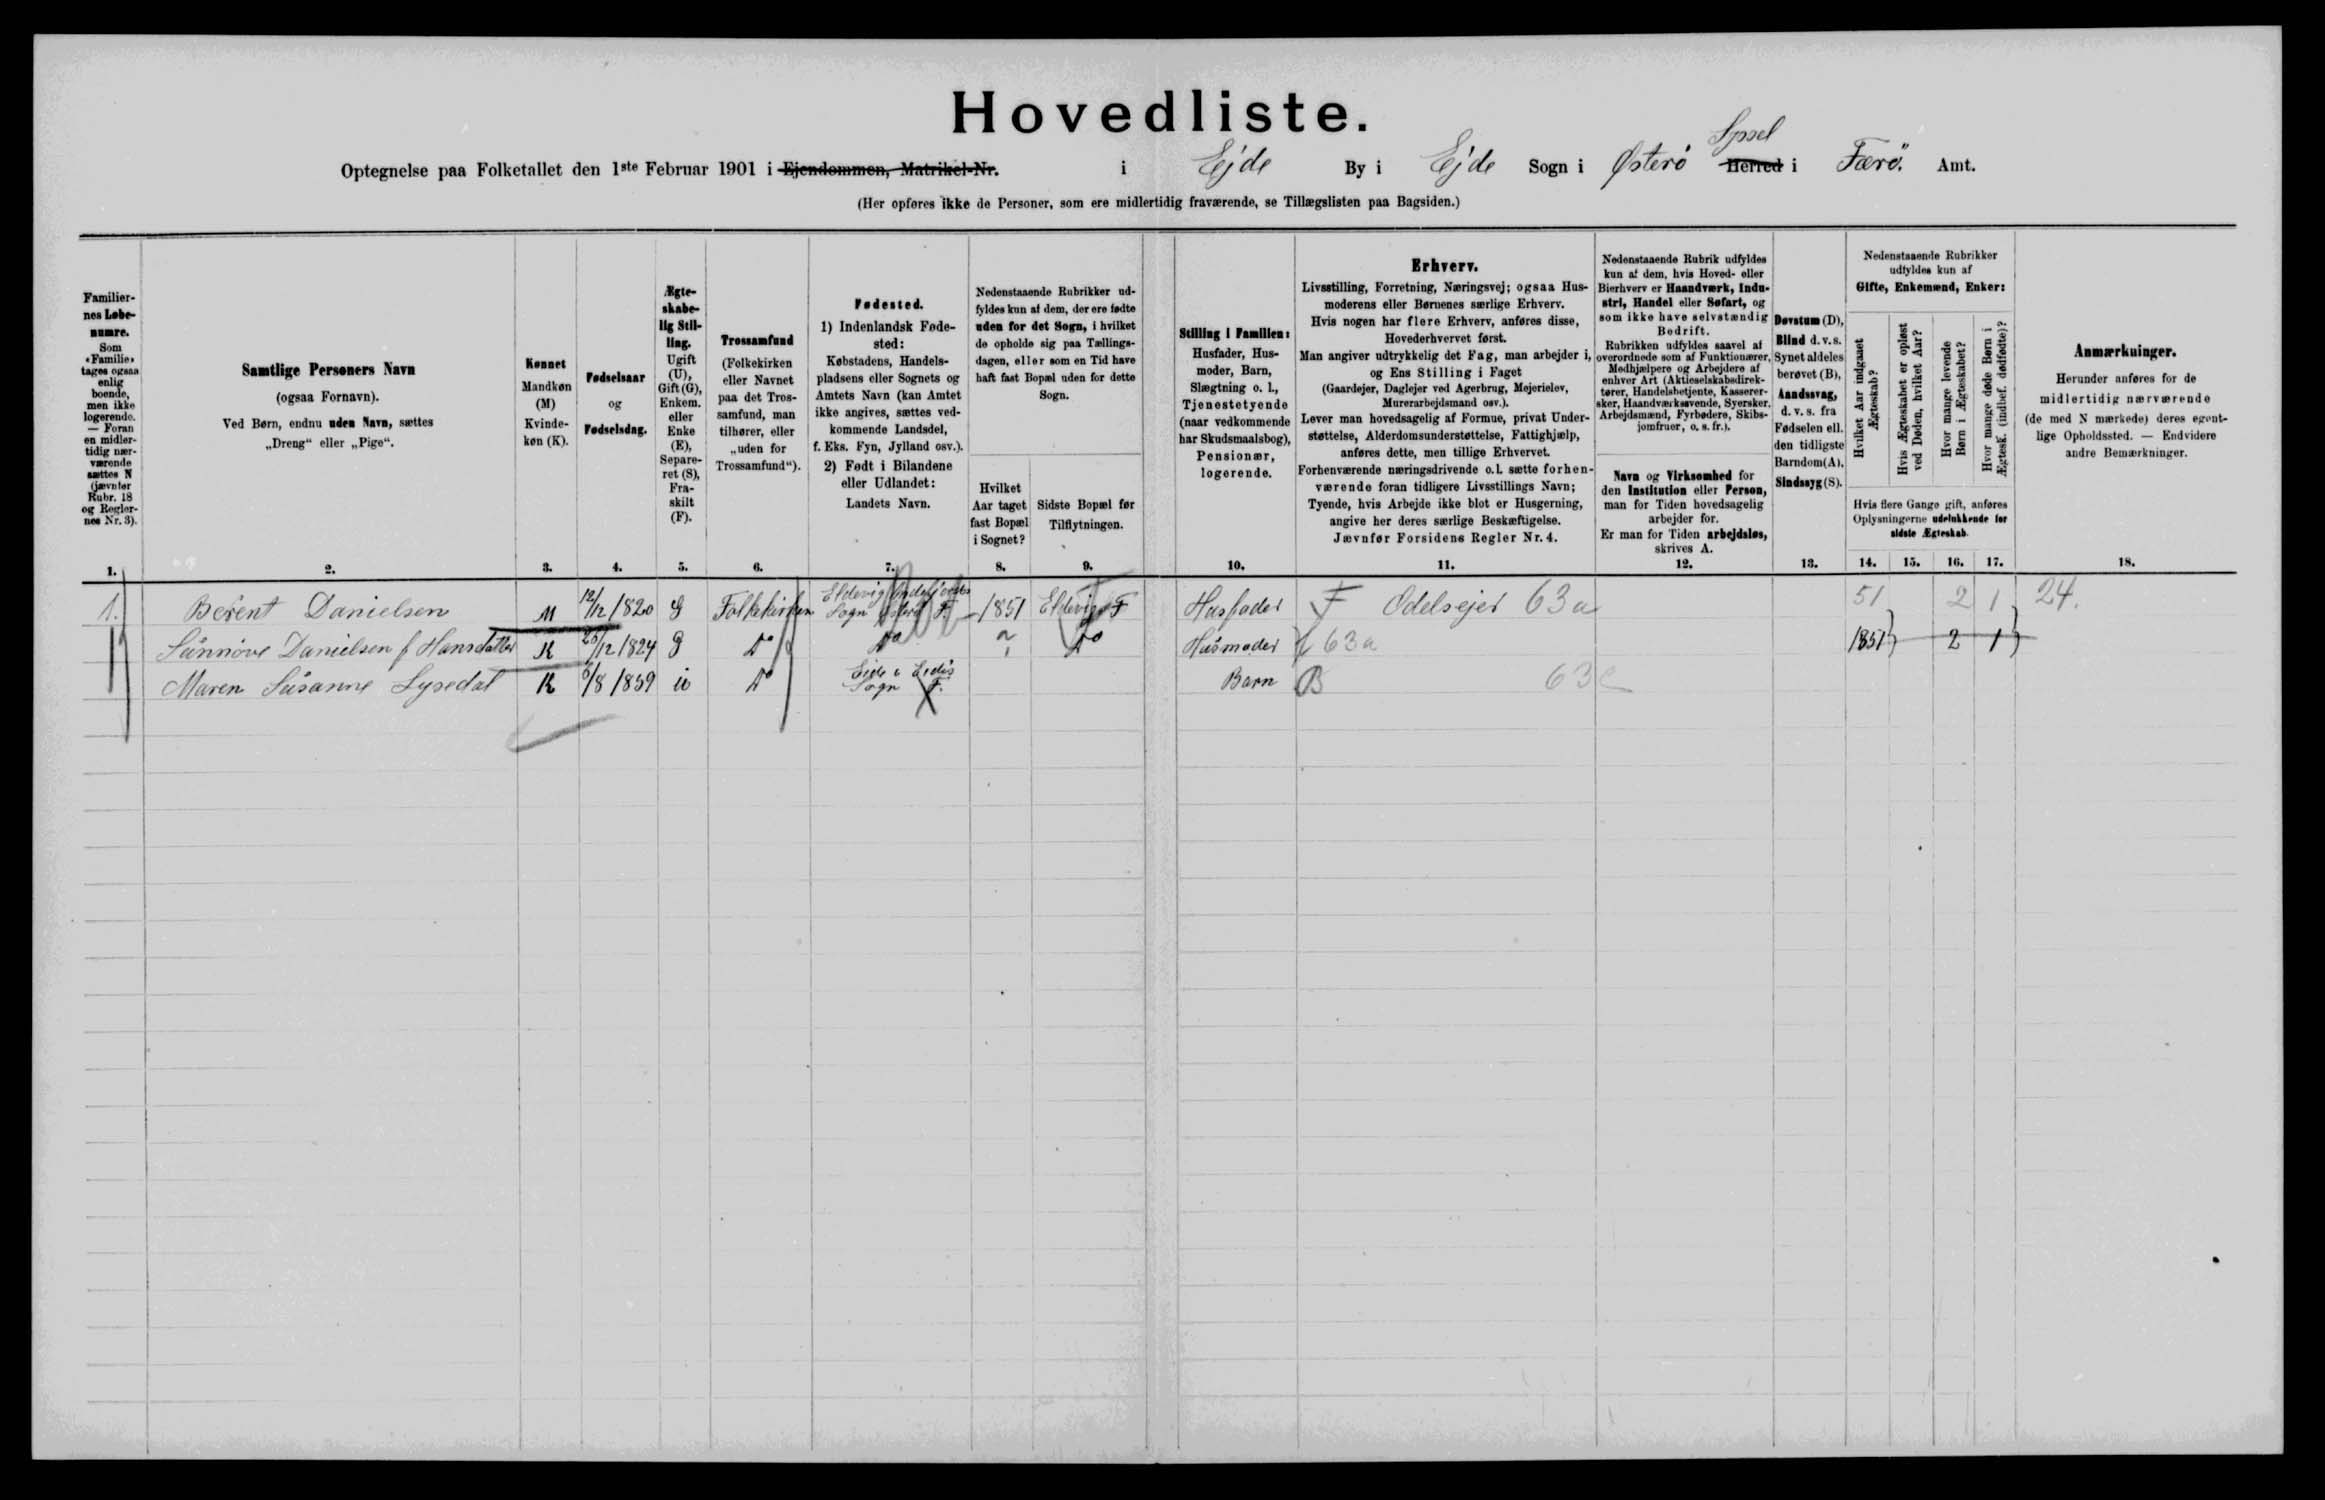 Hovedliste.
Optegnelse paa Folketallet den 1ste Februar 1901 i Ejendommen, Matrikel-Nr. i Ejde By i Ejde Sogn i Østerø Herred Syssel i Færø. Amt.
(Her opføres ikke de Personer, som ere midlertidig fraværende, se Tillægslisten paa Bagsiden.)
Familiernes Løbenumre.
Som «Familie» tages ogsaa enlig boende, men ikke logerende. — Foran en midlertidig nærværende sættes N (jævnfør Rubr. 18 og Reglernes Nr. 3).
Samtlige Personers Navn
(ogsaa Fornavn).
Ved Børn, endnu uden Navn, sættes
„Dreng“ eller „Pige“.
Kønnet
Mandkøn (M)
Kvindekøn (K).
Fødselsaar
og
Fødselsdag.
Ægteskabelig Stilling.
Ugift (U), Gift (G), Enkem. eller Enke (E), Separeret (S), Fraskilt (F).
Trossamfund
(Folkekirken eller Navnet paa det Trossamfund, man tilhører, eller „uden for Trossamfund“).
Fødested.
1) Indenlandsk Fødested:
Købstadens, Handelspladsens eller Sognets og Amtets Navn (kan Amtet ikke angives, sættes vedkommende Landsdel, f. Eks. Fyn, Jylland osv.).
2) Født i Bilandene eller Udlandet:
Landets Navn.
Nedenstaaende Rubrikker udfyldes kun af dem, der ere fødte uden for det Sogn, i hvilket de opholde sig paa Tællingsdagen, eller som en Tid have haft fast Bopæl uden for dette Sogn.
Hvilket Aar taget fast Bopæl i Sognet?
Sidste Bopæl før Tilflytningen.
Stilling i Familien:
Husfader, Husmoder, Barn, Slægtning o. l., Tjenestetyende (naar vedkommende har Skudsmaalsbog), Pensionær, logerende.
Erhverv.
Livsstilling, Forretning, Næringsvej; ogsaa Husmoderens eller Børnenes særlige Erhverv.
Hvis nogen har flere Erhverv, anføres disse, Hovederhvervet først.
Man angiver udtrykkelig det Fag, man arbejder i, og Ens Stilling i Faget
(Gaardejer, Daglejer ved Agerbrug, Mejerielev, Murerarbejdsmand osv.).
Lever man hovedsagelig af Formue, privat Understøttelse, Alderdomsunderstøttelse, Fattighjælp, anføres dette, men tillige Erhvervet.
Forhenværende næringsdrivende o.l. sætte forhenværende foran tidligere Livsstillings Navn;
Tyende, hvis Arbejde ikke blot er Husgerning, angive her deres særlige Beskæftigelse.
Jævnfør Forsidens Regler Nr. 4.
Nedenstaaende Rubrik udfyldes kun af dem, hvis Hoved- eller Bierhverv er Haandværk, Industri, Handel eller Søfart, og som ikke have selvstændig Bedrift.
Rubrikken udfyldes saavel af overordnede som af Funktionærer, Medhjælpere og Arbejdere af enhver Art (Aktieselskabsdirektører, Handelsbetjente, Kasserersker, Haandværkssvende, Syersker, Arbejdsmænd, Fyrbødere, Skibsjomfruer, o. s. fr.).
Navn og Virksomhed for den Institution eller Person, man for Tiden hovedsagelig arbejder for.
Er man for Tiden arbejdsløs, skrives A.
Døvstum (D), Blind d.v.s. Synet aldeles berøvet (B), Aandssvag, d. v. s. fra Fødselen ell. den tidligste Barndom (A), Sindssyg (S).
Nedenstaaende Rubrikker udfyldes kun af
Gifte, Enkemænd, Enker:
Hvilket Aar indgaaet Ægteskab?
Hvis Ægteskabet er opløst ved Døden, hvilket Aar?
Hvor mange levende Børn i Ægteskabet?
Hvor mange døde Børn i Ægtesk. (indbef. dødfødte)?
Hvis flere Gange gift, anføres Oplysningerne udelukkende for sidste Ægteskab.
Anmærkninger.
Herunder anføres for de midlertidig nærværende (de med N mærkede) deres egentlige Opholdssted. — Endvidere andre Bemærkninger.
1. 2. 3. 4. 5. 6. 7. 8. 9. 10. 11. 12. 13. 14. 15. 16. 17. 18.
1. Berent Danielsen M 12/12 1820 G Folkekirken Eldevig Sogn Østerø F. 1851 Eldevig F Husfader F Odelsejer 63a 51 2 1 24.
Sünnöve Danielsen f Hansdatter K 26/12 1824 G Do Do Do Husmoder 63a 1851 2 1
Maren Susanne Lysedal K 6/8 1859 U Do Eide i Eides Sogn F. Barn B 63